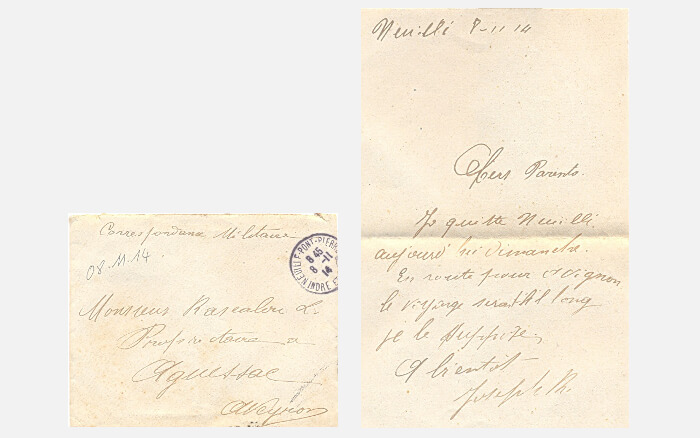 Correspondance Militaire
08.11.14.
NEUILLE-PONT-PIERRE
8 45
8 -11
14
INDRE
Monsieur Rascalou L.
Propriétaire a
Aguessac
Aveyron
Neuilli 8-11 14
Chers Parents.
Je quitte Neuilli
aujourd hui Dimanche.
En route pour Avignon
le voyage serat'il long
je le suppose,
A bientot
Joseph R.